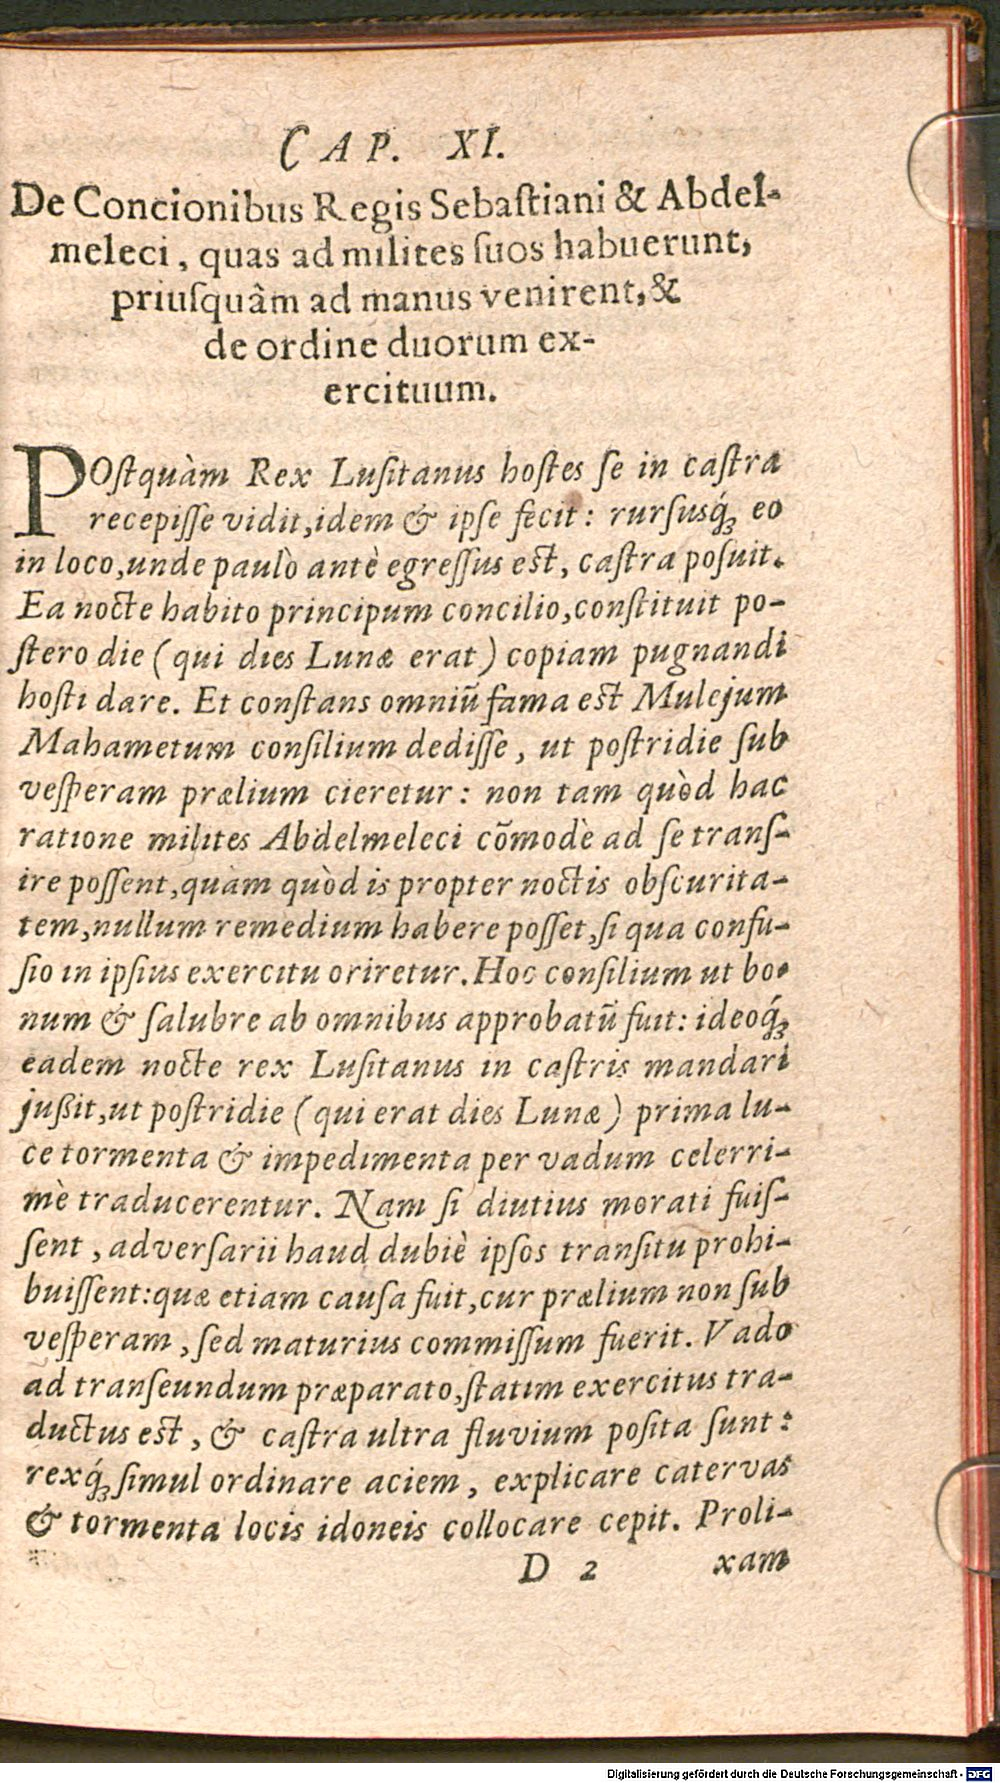 CAP. XI.
De Concionibus Regis Sebaſtiani & Abdel-
meleci, quas ad milites ſuos habuerunt,
priuſquâm ad manus venirent, &
de ordine duorum ex-
ercituum.
POſtquàm Rex Luſitanus hoſtes ſe in caſtra
recepiſſe vidit, idem & ipſe fecit: rurſusq́ꝫ eo
in loco, unde paulò antè egreſſus eſt, caſtra poſuit.
Ea nocte habito principum concilio, conſtituit po-
ſtero die (qui dies Lunæ erat) copiam pugnandi
hoſti dare. Et conſtans omniũ fama eſt Mulejum
Mahametum conſilium dediſſe, ut poſtridie ſub
veſperam prælium cieretur: non tam quòd hac
ratione milites Abdelmeleci cõmodè ad ſe tranſ-
ire poſſent, quàm quòd is propter noctis obſcurita-
tem, nullum remedium habere poſſet, ſi qua confu-
ſio in ipſius exercitu oriretur. Hoc conſilium ut bo-
num & ſalubre ab omnibus approbatũ fuit: ideoq́ꝫ
eadem nocte rex Luſitanus in caſtris mandari
jußit, ut poſtridie (qui erat dies Lunæ) prima lu-
ce tormenta & impedimenta per vadum celerri-
mè traducerentur. Nam ſi diutius morati fuiſ-
ſent, adverſarii haud dubiè ipſos tranſitu prohi-
buiſſent: quæ etiam cauſa fuit, cur prælium non ſub
veſperam, ſed maturius commiſſum fuerit. Vado
ad tranſeundum præparato, ſtatim exercitus tra-
ductus eſt, & caſtra ultra fluvium poſita ſunt:
rexq́ꝫ ſimul ordinare aciem, explicare catervas
& tormenta locis idoneis collocare cepit. Proli-
D 2 xam
Digitalisierung gefördert durch die Deutsche Forschungsgemeinschaft - DFG